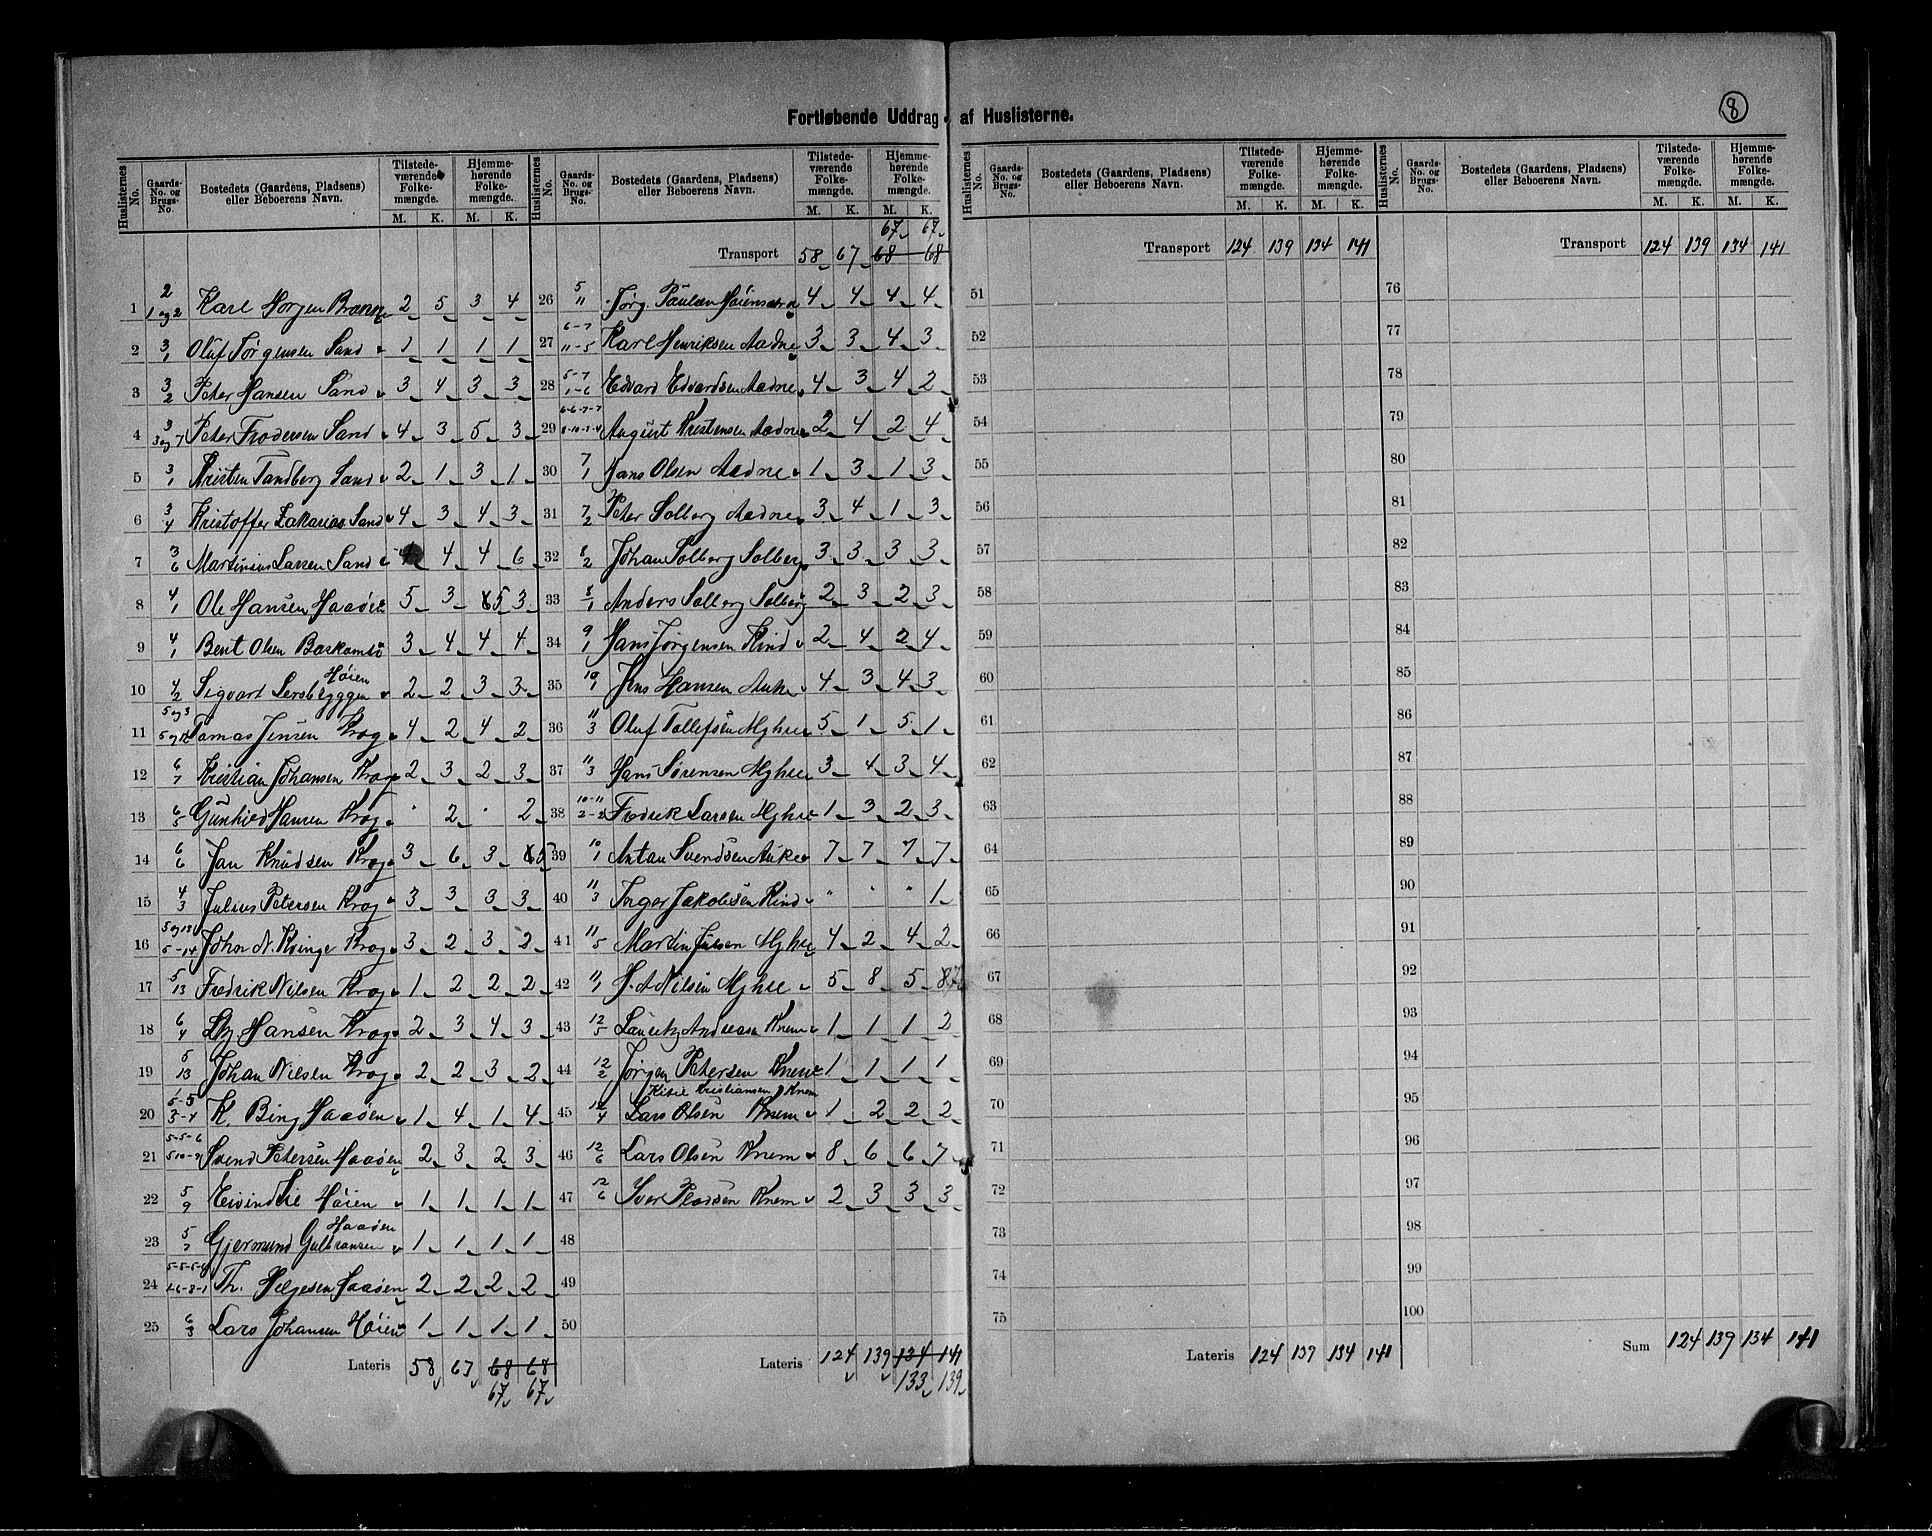 Fortløbende Uddrag af Huslisterne.
8
Huslisternes No. Gaards-No. og Brugs-No. Bostedets (Gaardens, Pladsens) eller Beboerens Navn. Tilstede-værende Folke-mængde. M. K. Hjemme-hørende Folke-mængde. M. K.
1 2 1 og 2 Karl Jørgen 2 5 3 4
2 3/1 Oluf Jørgensen Sand 1 1 1 1
3 3/2 Peter Hansen Sand 3 4 3 3
4 3 3 og 7 Peter Frodersen Sand 4 3 5 3
5 3/1 Kristen Tandberg Sand 2 1 3 1
6 3/4 Kristoffer Zakarias Sand 4 3 4 3
7 3/6 Martinius Larsen Sand 4 4 6
8 4/1 Ole Hansen Haaøen 5 3 5 3
9 4/1 Bent Olsen 3 4 4 4
10 4/2 Sigvart Høien 2 2 3 3
11 5 og 3 Tomas Jensen Krog 4 2 4 2
12 6/7 Kristian Johansen Krog 2 3 2 3
13 6/5 Gunhild Hansen Krog " 2 " 2
14 6/6 Jan Knudsen Krog 3 6 3 6 5
15 4/3 Julius Petersen Krog 3 3 3 3
16 5 og 13 5-14 John N. Kvinge Krog 3 2 3 2
17 5/13 Fredrik Nilsen Krog 1 2 2 2
18 6/4 Hansen Krog 2 3 4 3
19 5/13 Johan Nilsen Krog 2 2 3 2
20 5-5 3-4 K. Bing Haaøen 1 4 1 4
21 5-5-6 5 10-9 Svend Petersen Haaøen 2 3 2 3
22 5/9 Eivind Lie Høien 1 1 1 1
23 5/7 Gjermund Gulbransen Haaøen 1 1 1 1
24 Th. Helgesen Haaøen 2 2 2 2
25 6/3 Lars Johansen Høien 1 1 1 1
Lateris 58 67 68 68
67 67
Huslisternes No. Gaards-No. og Brugs-No. Bostedets (Gaardens, Pladsens) eller Beboerens Navn. Tilstede-værende Folke-mængde. M. K. Hjemme-hørende Folke-mængde. M. K.
67 67
Transport 58 67 68 68
26 5/11 Jørg. Paulsen 4 4 4 4
27 6-7 11-5 Karl Henriksen Aadne 3 3 4 3
28 5-7 1-6 Edvard Edvardsen Aadne 4 3 4 2
29 6-6-7-7 8-10-3-4 August Kristensen Aadne 2 4 2 4
30 7/1 Hans Olsen Aadne 1 3 1 3
31 7/2 Peter Solberg Aadne 3 4 1 3
32 8/2 Johan Solberg Solberg 3 3 3 3
33 8/1 Anders Solberg Solberg 2 3 2 3
34 9/1 Hans Jørgensen Kind 2 4 2 4
35 10/1 Jens Hansen Auke 4 3 4 3
36 11/3 Oluf Tollefsen Myhre 5 1 5 1
37 11/3 Hans Sørensen Myhre 3 4 3 4
38 10-11 2-2 Fredrik Larsen Myhre 1 3 2 3
39 10/1 Antan Svendsen Auke 7 7 7 7
40 11/3 Inger Jakobsen Kind " " " 1
41 11/5 Martin Jensen Myhre 4 2 4 2
42 11/1 H. A Nilsen Myhre 5 8 5 8 7
43 12/5 Lauritz Andreasen Knem 1 1 1 2
44 12/2 Jørgen Petersen Knem 1 1 1 1
Kristiansen Knem
45 12/4 Lars Olsen Knem 1 2 2 2
46 12/6 Lars Olsen Knem 8 6 6 7
47 12/6 Iver Knem 2 3 3 3
48
49
50
Lateris 124 139 134 141
133 139
Huslisternes No. Gaards-No. og Brugs-No. Bostedets (Gaardens, Pladsens) eller Beboerens Navn. Tilstede-værende Folke-mængde. M. K. Hjemme-hørende Folke-mængde. M. K.
Transport 124 139 134 141
51
52
53
54
55
56
57
58
59
60
61
62
63
64
65
66
67
68
69
70
71
72
73
74
75
Lateris 124 139 134 141
Huslisternes No. Gaards-No. og Brugs-No. Bostedets (Gaardens, Pladsens) eller Beboerens Navn. Tilstede-værende Folke-mængde. M. K. Hjemme-hørende Folke-mængde. M. K.
Transport 124 139 134 141
76
77
78
79
80
81
82
83
84
85
86
87
88
89
90
91
92
93
94
95
96
97
98
99
100
Sum 124 139 134 141